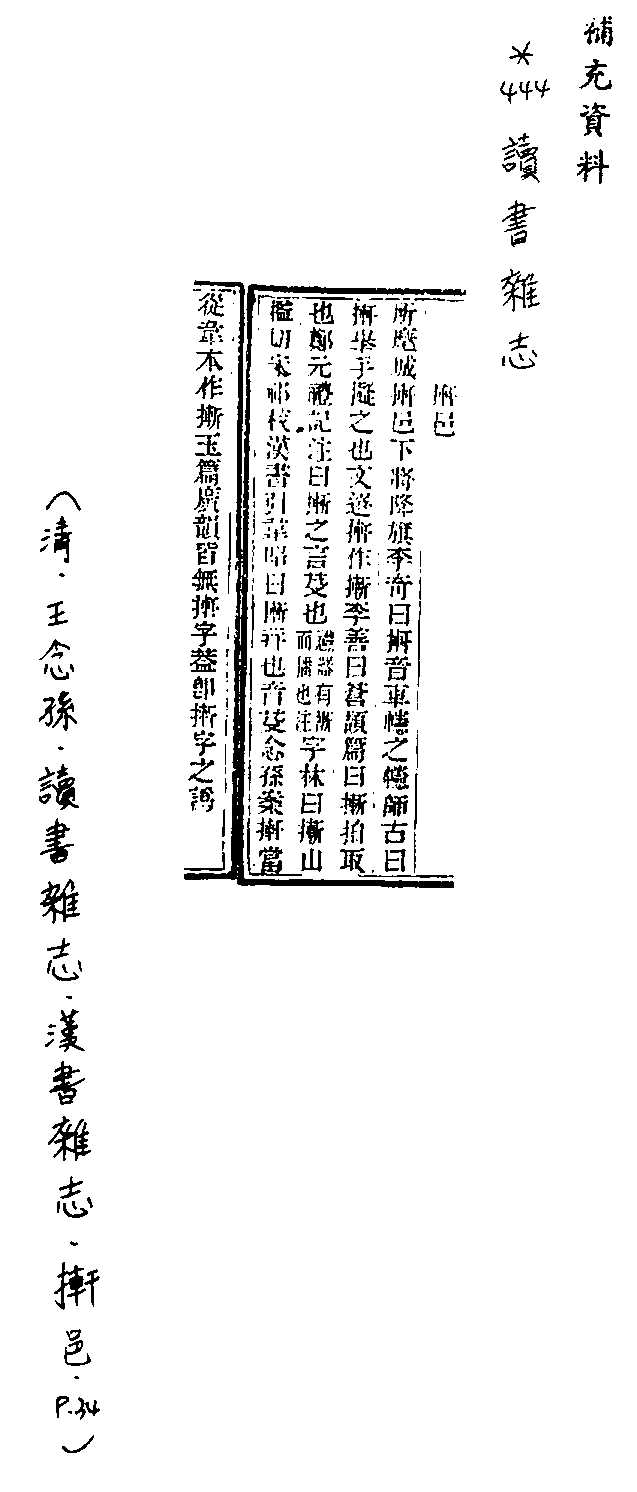 補充資料
*444 讀書雜志
摲邑
所麾城摲邑下將降旗李奇曰摲音車幰之幰師古曰
摲舉手擬之也文選摲作摲李善曰蒼頡篇曰摲拍取
也鄭元禮記注曰摲之言芟也禮器有摲而播也注字林曰摲山
檻切宋祁校漢書引韋昭曰摲幷也音芟念孫案摲當
從韋本作摲玉篇廣韻皆無㨟字葢即摲字之譌
(清.王念孫.讀書雜志.漢書雜志.㨟邑.P.34)